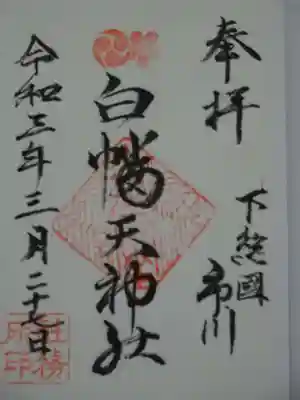 奉拝
下総國
市川
白幡天神社
令和三年三月二十七日
社務
所印